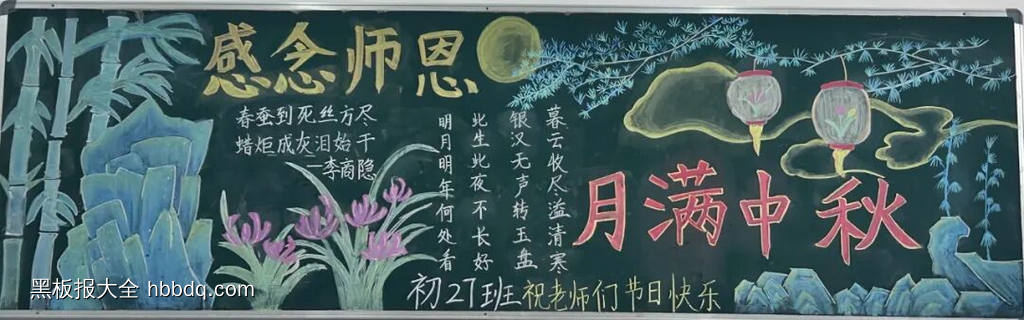 感念师恩
春蚕到死丝方尽
蜡炬成灰泪始干
—李商隐
暮云收尽溢清寒
银汉无声转玉盘
此生此夜不长好
明月明年何处看
月满中秋
初27班祝老师们节日快乐
黑板报大全 hbbdq.com